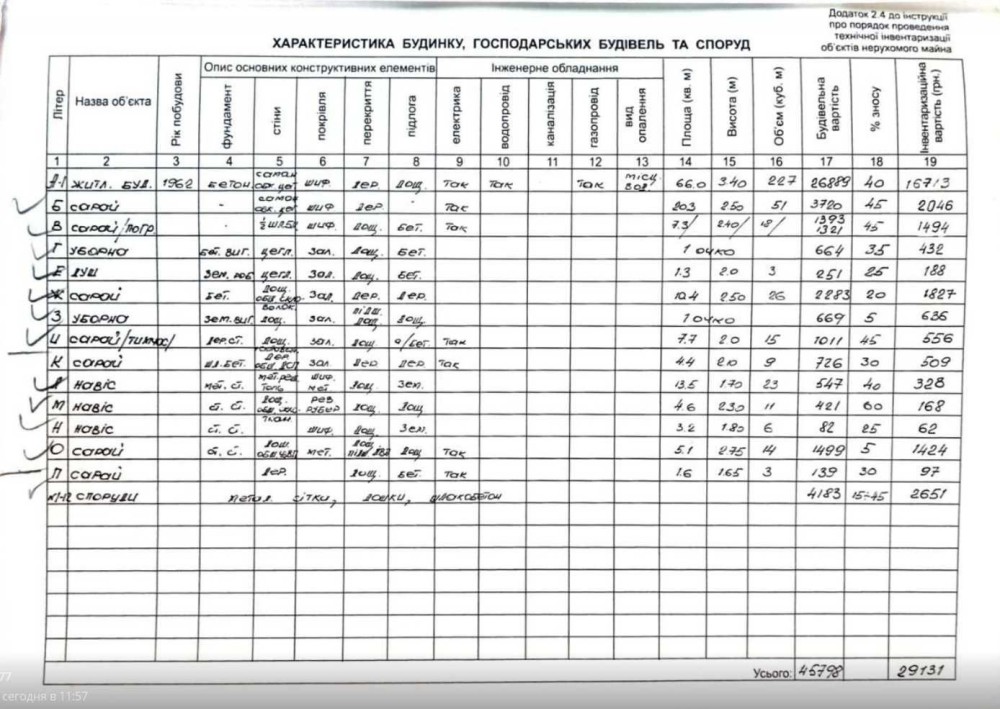 Додаток 2.4 до Інструкції
про порядок проведення
технічної інвентаризації
об'єктів нерухомого майна
ХАРАКТЕРИСТИКА БУДИНКУ, ГОСПОДАРСЬКИХ БУДІВЕЛЬ ТА СПОРУД
Літер Назва об'єкта Рік побудови Опис основних конструктивних елементів Інженерне обладнання Площа (кв. м) Висота (м) Об'єм (куб. м) Будівельна вартість % зносу Інвентаризаційна вартість (грн.)
фундамент стіни покрівля перекриття підлога електрика водопровід каналізація газопровід вид опалення
1 2 3 4 5 6 7 8 9 10 11 12 13 14 15 16 17 18 19
А-1 житл. буд. 1962 бетон саман обк. цег шиф. дер. дощ. так так так місц. 66.0 3.40 227 26889 40 16713
Б сарай - саман обк. цег шиф дер. так 20.3 2.50 51 3720 45 2046
В сарай/погр. - ½ шлбк шиф. дощ. бет. так 7.3/ 2.40/ 18/ 1393 1321 45 1494
Г уборна бет. виг. цегл. зал. дощ. бет. 1 очко 664 35 432
Е душ зем. роб цегл. зал. дощ. бет. 1.3 2.0 3 251 25 188
Ж сарай бет. дощ. зал. дер. дер. 10.4 2.50 26 2283 20 1827
З уборна зем. виг. дощ. зал. підш. дощ. дощ 1 очко 669 5 636
И сарай дер. ст. дощ. зал. дощ. так 7.7 2.0 15 1011 45 556
К сарай шл. бет. дер зал дер дер так 4.4 2.10 9 726 30 509
Л навіс мет. с. шиф. мет. дощ. зем. 13.5 1.70 23 547 40 328
М навіс с. с. дощ. дощ. дощ 4.6 2.30 11 421 60 168
Н навіс с. с. ткан. шиф. дощ зем. 3.2 1.80 6 82 25 62
О сарай с. с. дощ. мет. дощ дощ так 5.1 2.75 14 1499 5 1424
П сарай дер. дощ. бет. так 1.6 1.65 3 139 30 97
№1-12 споруди метал. сітки, дошки, шлакобетон 4183 15÷45 2651
Усього: 45798 29131
77
сегодня в 11:57